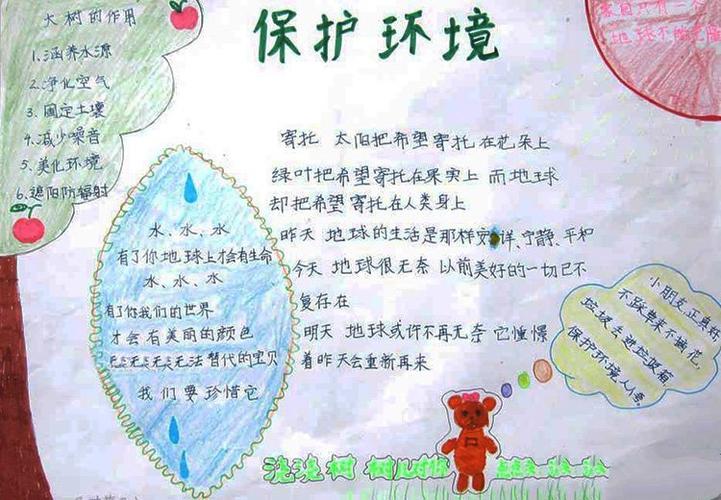 保护环境
大树的作用
1.涵养水源
2.净化空气
3.固定土壤
4.减少噪音
5.美化环境
6.遮阳防辐射
家园只有一个
地球不能克隆
寄托 太阳把希望寄托在花朵上
绿叶把希望寄托在果实上 而地球
却把希望寄托在人类身上
昨天 地球的生活是那样安详、宁静、平和
今天 地球很无奈 以前美好的一切已不
复存在
明天 地球或许不再无奈 它憧憬
着昨天会重新再来
水、水、水
有了你地球上才会有生命
水、水、水
有了你我们的世界
才会有美丽的颜色
无法替代的宝贝
我们要珍惜它
小朋友
不踩草来不摘花,
垃圾丢进垃圾箱,
保护环境人人
浇浇树 树儿对你